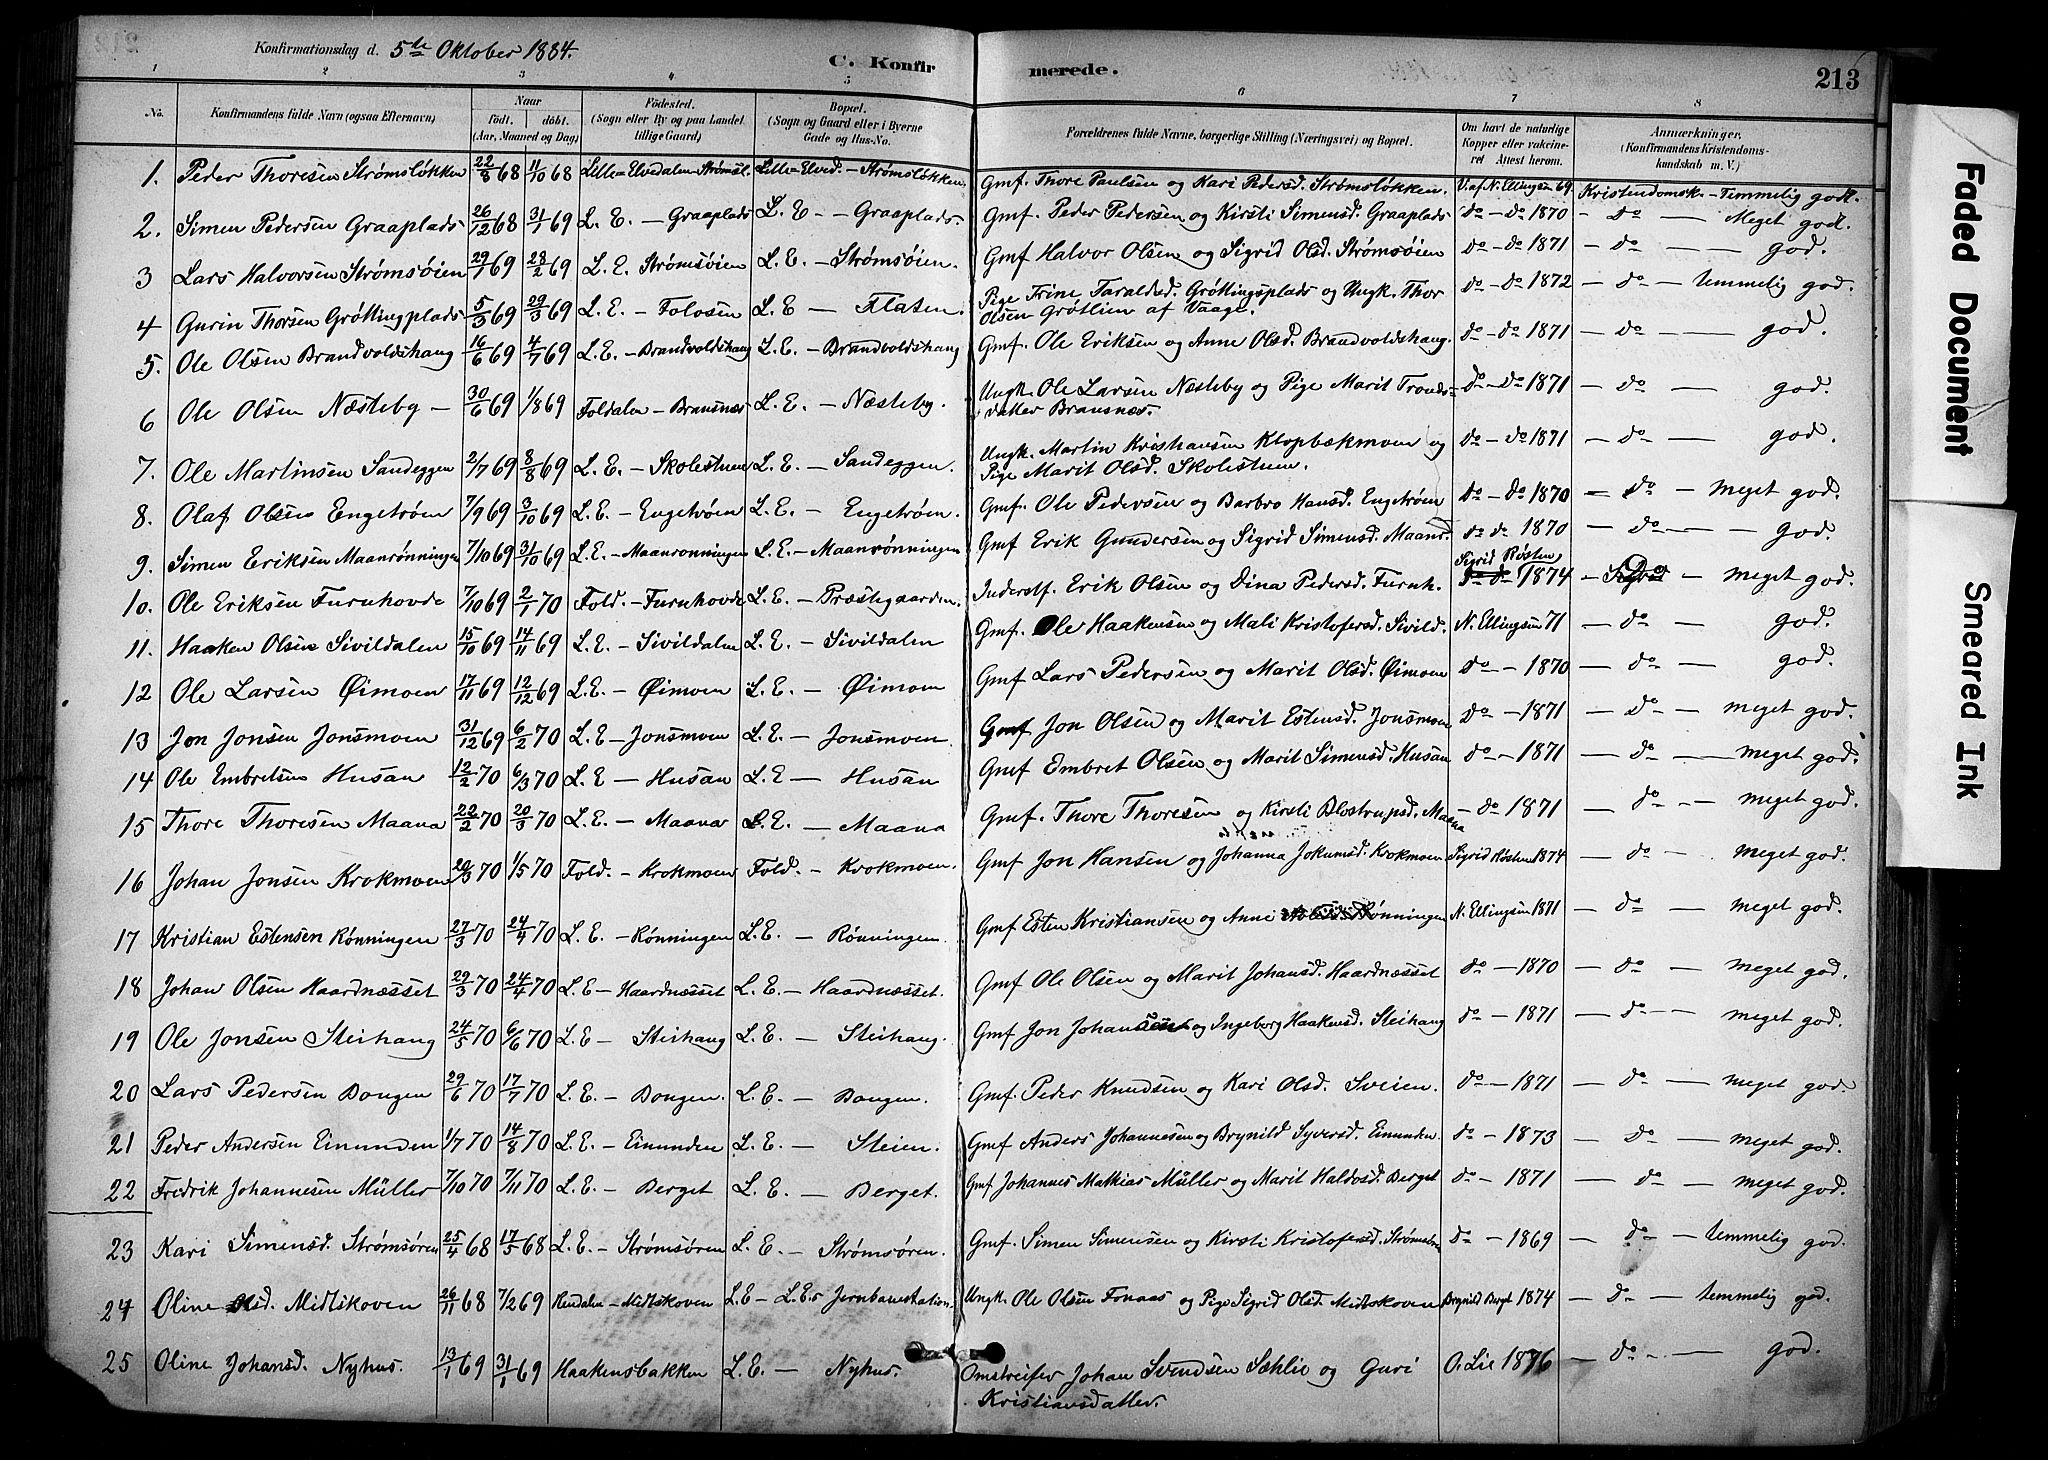 Konfirmationsdag d. 5te Oktober 1884.
C. Konfirmerede.
213
1 2 3 4 5 6 7 8
No. Konfirmandens fulde Navn (ogsaa Efternavn) Naar født. døbt. (Aar, Maaned og Dag) Fødested. (Sogn eller By og paa Landet tillige Gaard) Bopæl. (Sogn og Gaard eller i Byerne Gade og Hus-No. Forældrenes fulde Navne, borgerlige Stilling (Næringsvei) og Bopæl. Om havt de naturlige Kopper eller vaccineret Attest herom. Anmærkninger. (Konfirmandens Kristendomskundskab m. V.)
1. Peder Thoresen Strømsløkken 22/8 68 11/10 68 Lille-Elvedalen - Strømsl. Lille-Elved. - Strømsløkken. Gmf. Thore Paulsen og Kari Pedersd. Strømsløkken. V. af N. Ellingsen 69 Kristendomsk. - Temmelig god.
2. Simen Pedersen Graaplads 26/12 68 31/1 69 L. E. - Graaplads L. E. - Graaplads. Gmf. Peder Pedersen og Kirsti Simensd. Graaplads do - do 1870 - do - Meget god.
3 Lars Halvorsen Strømsøien 29/1 69 28/2 69 L. E. Strømsøien L. E. - Strømsøien. Gmf Halvor Olsen og Sigrid Olsd. Strømsøien do - do 1871 - do - god.
4 Gurin Thorsen Grøttingplads 5/3 69 29/3 69 L. E. - Folosen L. E - Flaten. Pige Trine Taraldsd. Grøttingsplads og Ungk. Thor do - do 1872 - do - temmelig god.
Olsen Grøtlien af Vaage.
5. Ole Olsen Brandvoldshaug 16/6 69 4/7 69 L. E. - Brandvoldshaug L. E. - Brandvoldshaug Gmf. Ole Eriksen og Anne Olsd. Brandvoldshaug. do - do 1871 - do - god.
6 Ole Olsen Næsteby - 30/6 69 1/8 69 Foldalen - Bransnæs L. E. - Næsteby. Ungk. Ole Larsen Næsteby og Pige Marit Tronds- do - do 1871 - do - god.
datter Bransnæs.
7. Ole Martinsen Sandeggen 2/7 69 8/8 69 L. E. - Skolestuen L. E. - Sandeggen. Ungk. Martin Kristiansen Klopbækmoen og do - do 1871 - do - god.
Pige Marit Olsd. Skolestuen.
8. Olaf Olsen Engetrøen 7/9 69 3/10 69 L. E. - Engetrøen L. E. - Engetrøen. Gmf. Ole Pedersen og Barbro Hansd. Engetrøen do - do 1870 - do - meget god.
9. Simen Eriksen Maanrønningen 7/10 69 31/10 69 L. E. - Maanrønningen L. E. - Maanrønningen Gmf Erik Gundersen og Sigrid Simensd. Maanr. do do 1870 - do - god.
10. Ole Eriksen Furuhovde 7/10 69 2/1 70 Fold. - Furuhovde L. E. - Præstegaarden. Inderstf. Erik Olsen og Dina Pedersd. Furuh. Sigrid Røsten 1874 - Do - meget god.
11. Haaken Olsen Sivildalen 15/10 69 14/11 69 L. E. - Sivildalen L. E. - Sivildalen Gmf. Ole Haakensen og Mali Kristofersd. Sivild. N. Ellingsen 71 - do - god.
12 Ole Larsen Øimoen 17/11 69 12/12 69 L. E. - Øimoen L. E. - Øimoen Gmf Lars Pedersen og Marit Olsd. Øimoen do - 1870 - do - god.
13 Jon Jonsen Jonsmoen 31/12 69 6/2 70 L. E - Jonsmoen L. E. - Jonsmoen. Gmf Jon Olsen og Marit Estensd. Jonsmoen do - 1871 - do - meget god.
14 Ole Embretsen Husan 12/2 70 6/3 70 L. E - Husan L. E - Husan Gmf Embret Olsen og Marit Simensd. Husan do - 1871 - do - meget god.
15 Thore Thoresen Maana 22/2 70 20/3 70 L. E. - Maana L. E. - Maana Gmf. Thore Thoresen og Kirsti Maana - do 1871 - do - meget god.
16 Johan Jonsen Krokmoen 20/3 70 1/5 70 Fold. - Krokmoen Fold. - Krokmoen. Gmf Jon Hansen og Johanna Jokumsd. Krokmoen Sigrid Røsten 1874 - do - meget god.
17 Kristian Estensen Rønningen 27/3 70 24/4 70 L. E. - Rønningen L. E. - Rønningen. Gmf Esten Kristiansen og Anne Rønningen N. Ellingsen 1871 - do - meget god.
18 Johan Olsen Haardnæsset 29/3 70 24/4 70 L. E - Haardnæsset L. E. - Haardnæsset. Gmf Ole Olsen og Marit Johansd. Haardnæsset do - 1870 - do - meget god.
19 Ole Jonsen Steihaug 24/5 70 6/6 70 L. E - Steihaug L. E. - Steihaug. Gmf Jon Johansen og Ingeborg Haakensd. Steihaug do - 1871 - do - meget god.
20 Lars Pedersen Bougen 29/6 70 17/7 70 L. E. - Bougen. L. E. - Bougen. Gmf. Peder Knudsen og Kari Olsd. Sveien. do - 1871 - do - meget god.
21 Peder Andersen Einunden 1/7 70 14/8 70 L. E. - Einunden L. E. - Steien. Gmf Anders Johannesen og Brynild Syversd. Einunden. do - 1873 - do - meget god.
22 Fredrik Johannesen Müller 7/10 70 7/11 70 L. E. - Berget L. E. - Berget. Gmf Johannes Mathias Müller og Marit Haldosd. Berget do - 1871 - do - meget god.
23 Kari Simensd. Strømsøren 25/4 68 17/5 68 L. E. - Strømsøren L. E. - Strømsøren. Gmf. Simen Simensen og Kirsti Kristofersd. do - 1869 - do - temmelig god.
24 Oline Olsd. Midtskoven 26/11 68 7/2 69 Rendalen - Midtskoven L. E - L. E.s Jernbanestation. Ungk. Ole Olsen Fonaas og Pige Sigrid Olsd. Midtskoven Brynild Berget 1874 - do - temmelig god.
25 Oline Johansd. Nyhus. 13/1 69 31/1 69 Haakensbakken L. E. - Nyhus. Omstreifer Johan Svendsen Sæhlie og Guri O. Lie 1876 - do - god.
Kristiansdatter.
Faded Document
Smeared Ink